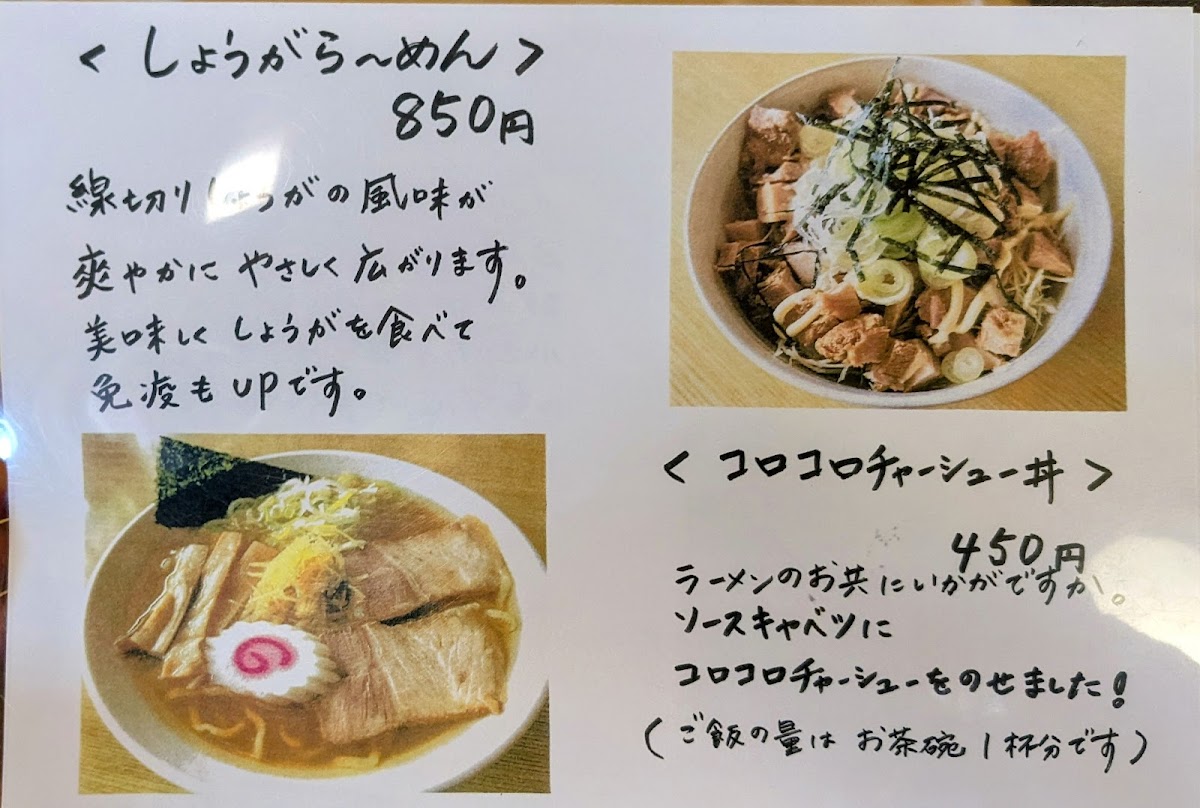 < しょうがら〜めん >
850円
線切りしょうがの風味が
爽やかに やさしく広がります。
美味しく しょうがを食べて
免疫も UPです。
< コロコロチャーシュー丼 >
450円
ラーメンのお共にいかがですか。
ソースキャベツに
コロコロチャーシューをのせました!
(ご飯の量は お茶碗 1杯分です)